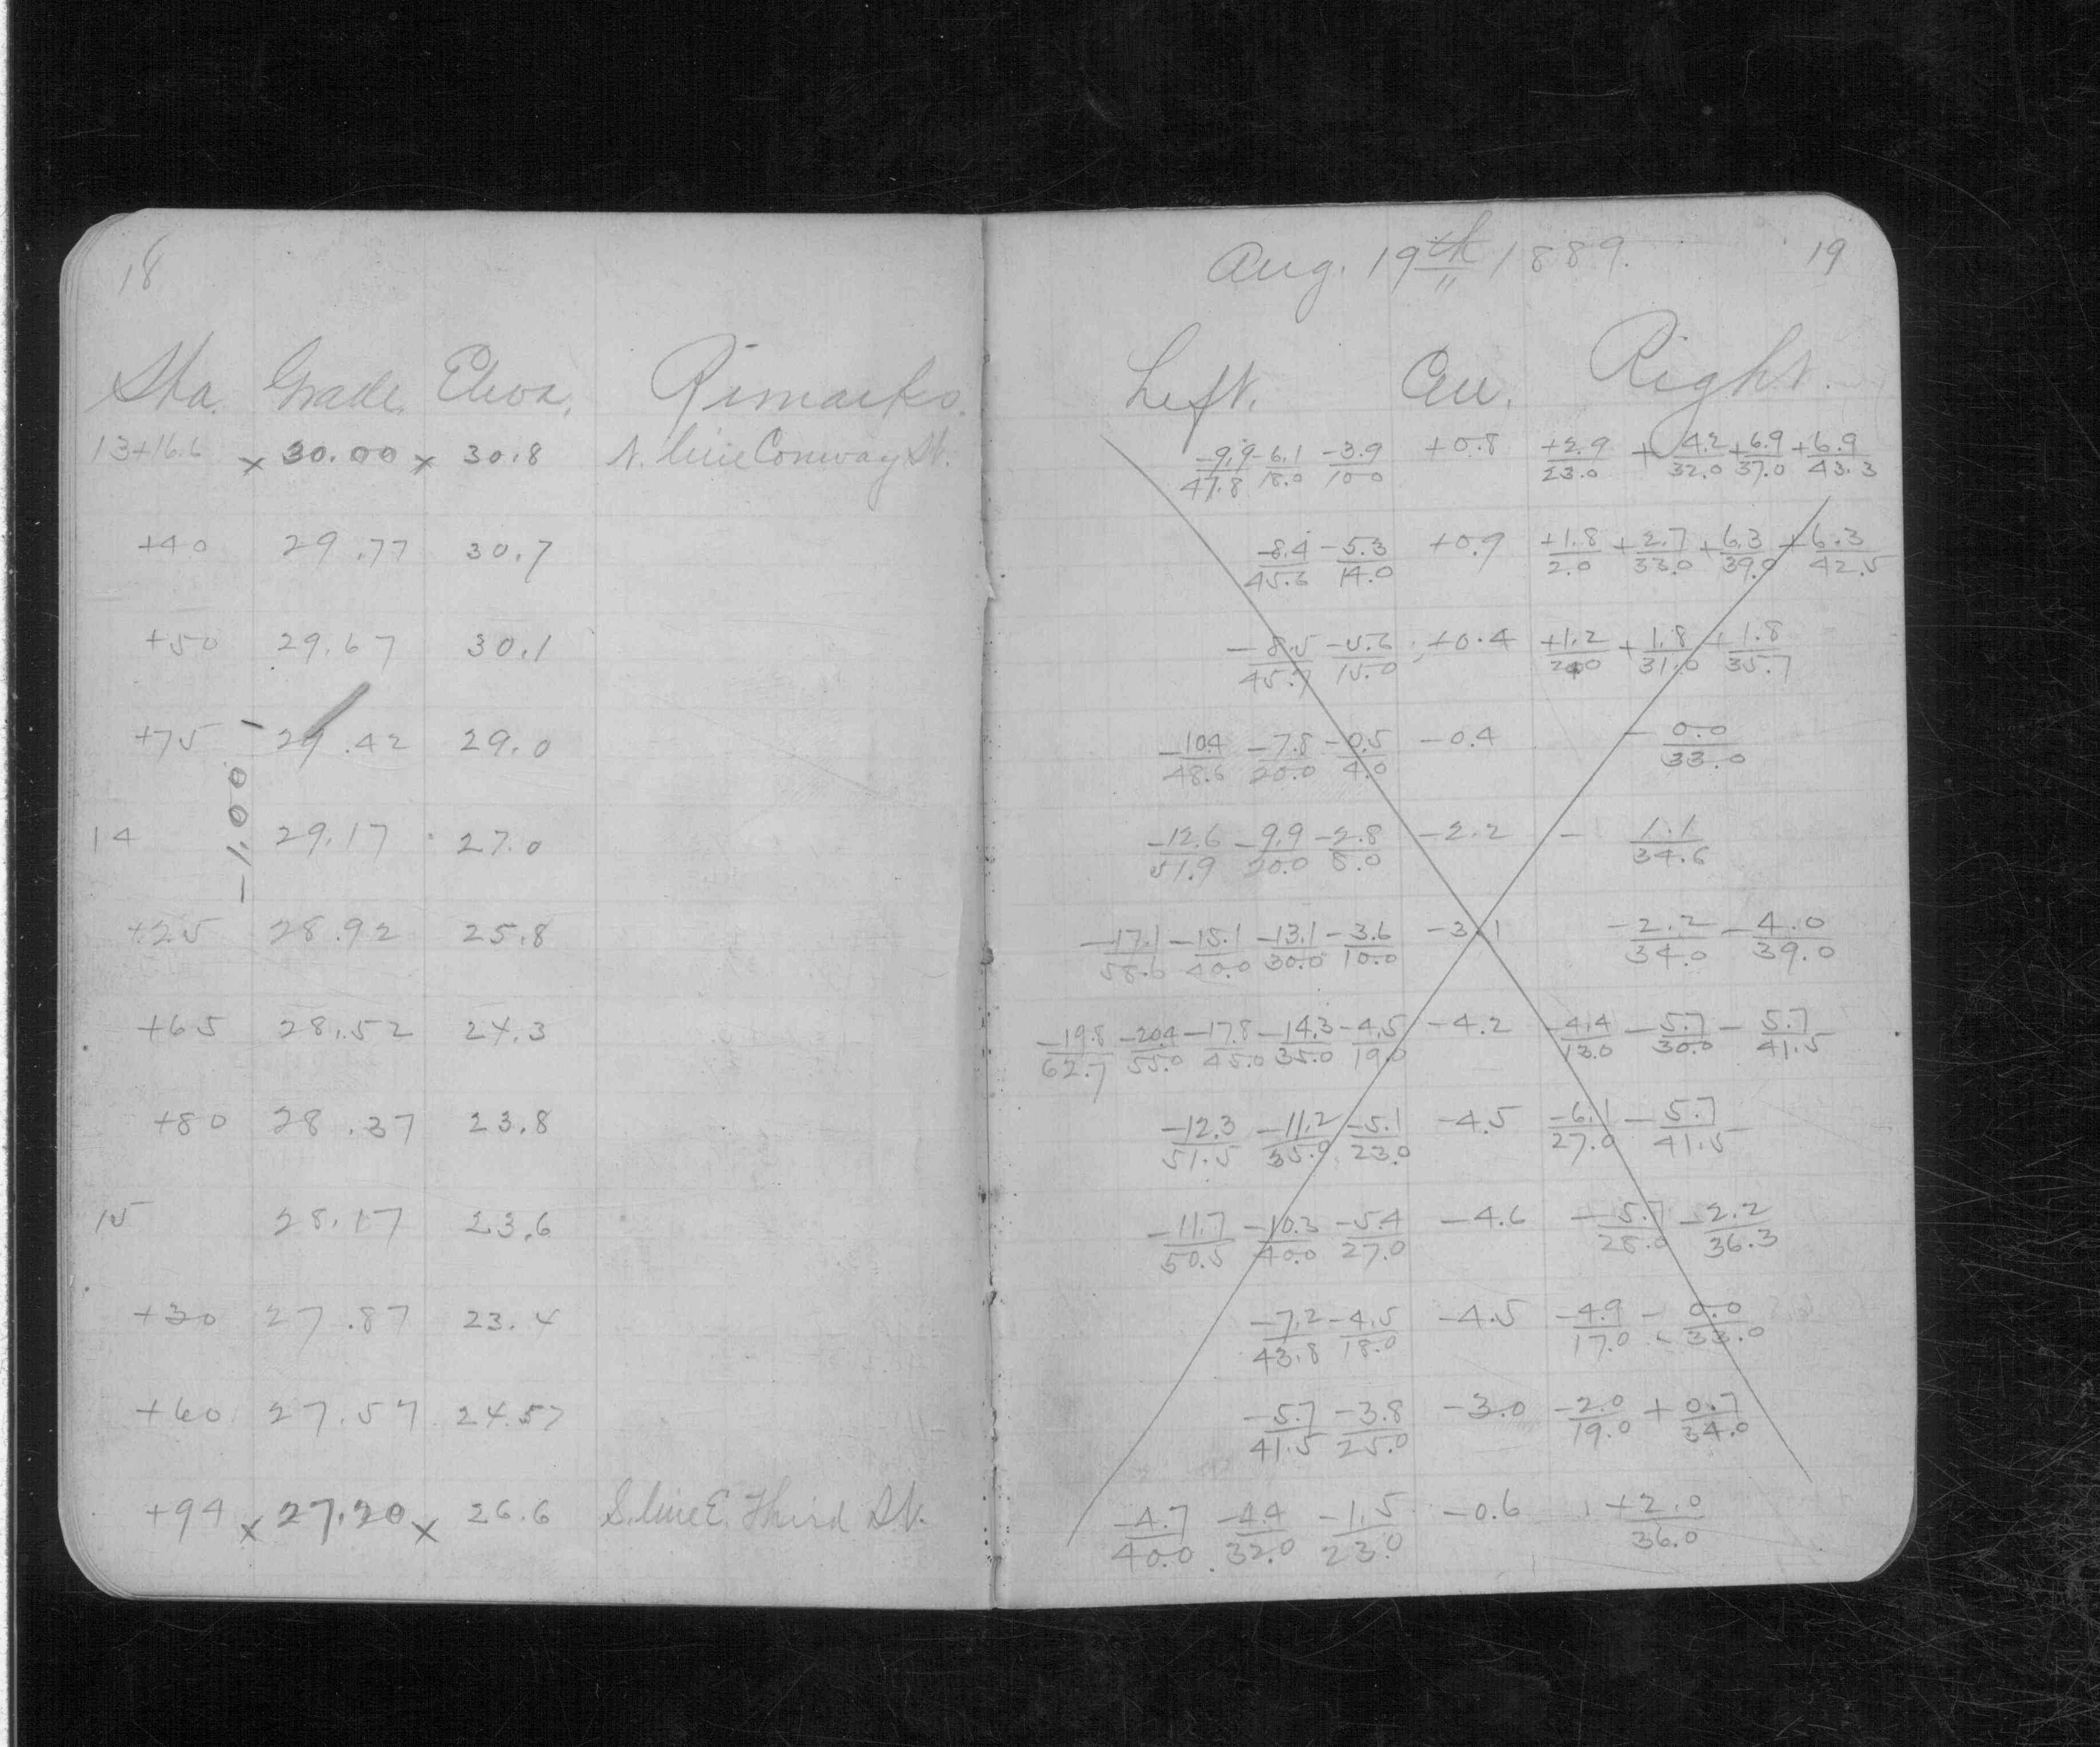 18
Sta. Grade. Eleva. Remarks.
13+16.6 x 30.00 x 30.8 N. line Conway St.
+40 29.77 30.7
+50 29.67 30.1
+75 29.42 29.0
-1.00
14 29.17 27.0
+25 28.92 25.8
+65 28.52 24.3
+80 28.37 23.8
15 28.17 23.6
+30 27.87 23.4
+60 27.57 24.57
+94 x 27.20 x 26.6 S. line E. Third St.
Aug. 19th 1889. 19
Left. Cen. Right.
-9.9 -6.1 -3.9 +0.8 +2.9 + 4.2 +6.9 +6.9
47.8 18.0 10.0 23.0 32.0 37.0 43.3
-8.4 -5.3 +0.9 +1.8 +2.7 +6.3 +6.3
45.6 14.0 2.0 33.0 39.0 42.5
-8.5 -5.6 +0.4 +1.2 +1.8 +1.8
45.7 15.0 31.0 35.7
-10.4 -7.8 -0.5 -0.4 - 0.0
48.6 20.0 4.0 33.0
-12.6 -9.9 -2.8 -2.2 - 1.1
51.9 20.0 8.0 34.6
-17.1 -15.1 -13.1 -3.6 -3.1 -2.2 -4.0
58.6 40.0 30.0 10.0 34.0 39.0
-19.8 -20.4 -17.8 -14.3 -4.5 -4.2 -4.4 -5.7 - 5.7
62.7 55.0 45.0 35.0 19.0 13.0 30.0 41.5
-12.3 -11.2 -5.1 -4.5 -6.1 - 5.7
51.5 35.0 23.0 27.0 41.5
-11.7 -10.3 -5.4 -4.6 -5.7 -2.2
50.5 40.0 27.0 28.0 36.3
-7.2 -4.5 -4.5 -4.9 - 0.0
43.8 18.0 17.0 33.0
-5.7 -3.8 -3.0 -2.0 + 0.7
41.5 25.0 19.0 34.0
-4.7 -4.4 -1.5 -0.6 +2.0
40.0 32.0 23.0 36.0